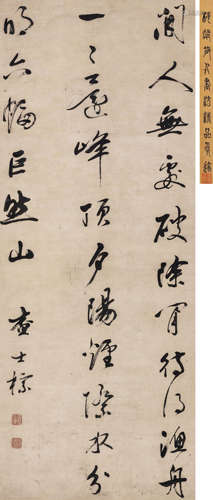 閒人無處破除閒待得漁舟
一〻還峰頂夕陽煙際水分
明六幅巨然山 查士標